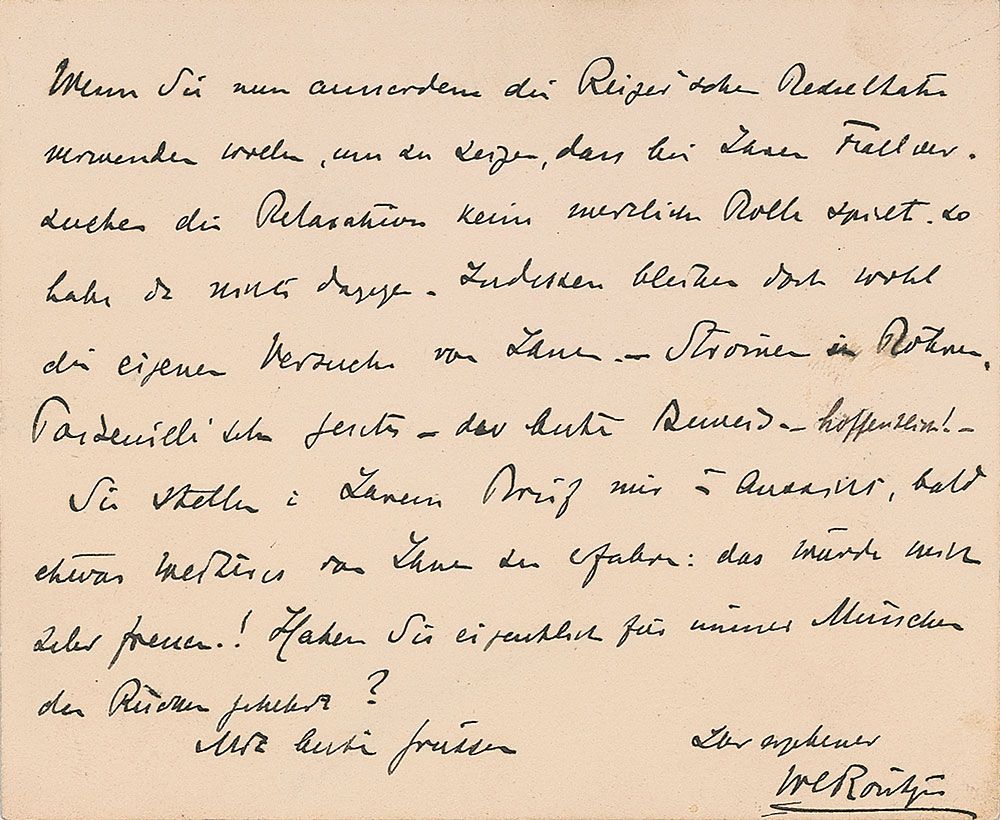 Wenn Sie nun ausserdem die Reiger'schen Resultate
verwenden wollen, um zu zeigen, dass bei Ihren Fallver-
suchen die Relaxation keine merkliche Rolle spielt, so
habe ich nichts dagegen. Indessen bleiben doch wohl
die eigenen Versuche von Ihnen – Strömen in Röhren,
Poiseuille'sche Gesetz – der beste Beweis – hoffentlich! –
Sie stellen in Ihrem Brief mir in Aussicht, bald
etwas Weiteres von Ihnen zu erfahren: das würde mich
sehr freuen! Haben Sie eigentlich für immer München
den Rücken gekehrt?
Mit besten Grüssen Ihr ergebener
WCRöntgen